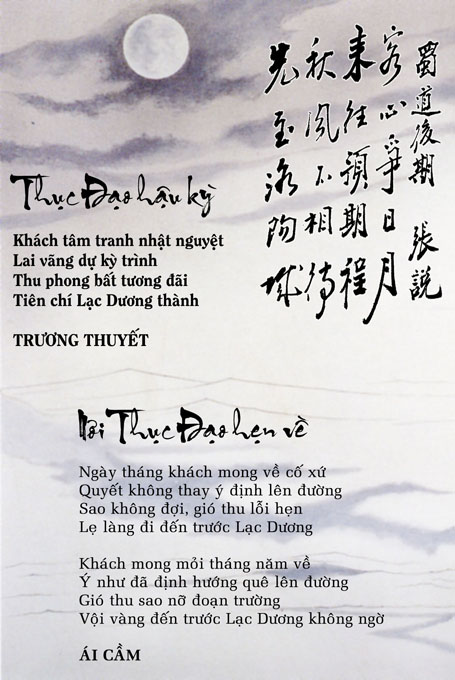 蜀道後期 張說
客心爭日月
来往預期程
秋風不相待
先至洛陽城
Thục Đạo hậu kỳ
Khách tâm tranh nhật nguyệt
Lai vãng dự kỳ trình
Thu phong bất tương đãi
Tiên chí Lạc Dương thành
TRƯƠNG THUYẾT
Nơi Thục Đạo hẹn về
Ngày tháng khách mong về cố xứ
Quyết không thay ý định lên đường
Sao không đợi, gió thu lỗi hẹn
Lẹ làng đi đến trước Lạc Dương
Khách mong mỏi tháng năm về
Ý như đã định hướng quê lên đường
Gió thu sao nỡ đoạn trường
Vội vàng đến trước Lạc Dương không ngờ
ÁI CẦM